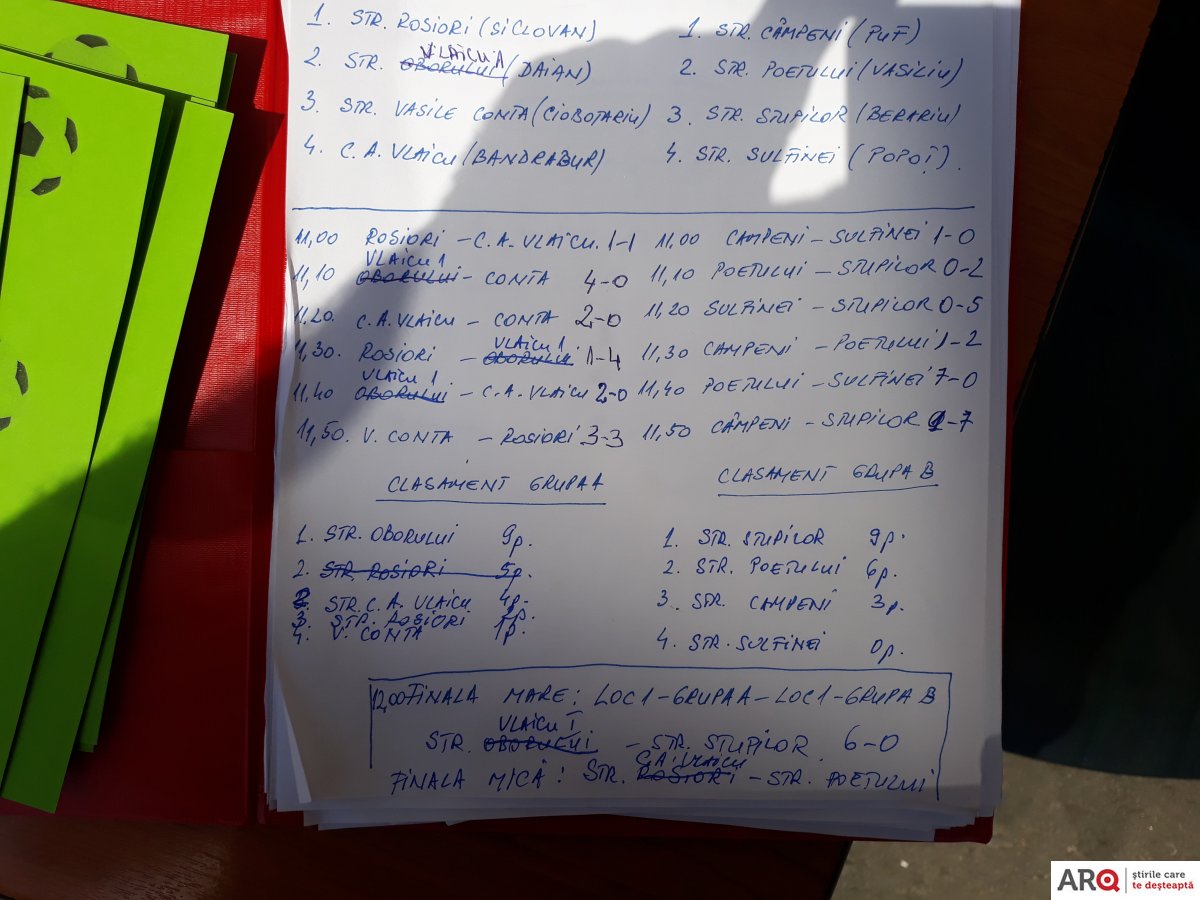 1. STR. ROSIORI (SICLOVAN)
2. STR. OBORULUI VLAICU 1 (DAIAN)
3. STR. VASILE CONTA (CIOBOTARIU)
4. C.A. VLAICU (BANDRABUR)
1. STR. CÂMPENI (PUF)
2. STR. POETULUI (VASILIU)
3. STR. STUPILOR (BERARIU)
4. STR. SULFINEI (POPOȚ).
11,00 ROSIORI - C.A. VLAICU. 1-1
VLAICU 1
11,10 OBORULUI - CONTA 4-0
11,20. C.A. VLAICU - CONTA 2-0
VLAICU 1
11,30. ROSIORI - OBORULUI 1-4
VLAICU 1
11,40 OBORULUI - C.A. VLAICU 2-0
11,50. V. CONTA - ROSIORI 3-3
11,00 CAMPENI - SULFINEI 1-0
11,10 POETULUI - STUPILOR 0-2
11,20 SULFINEI - STUPILOR 0-5
11,30 CAMPENI - POETULUI 1-2
11,40 POETULUI - SULFINEI 7-0
11,50 CÂMPENI - STUPILOR -7
CLASAMENT GRUPA A
1. STR. OBORULUI 9p.
2. STR. ROSIORI 5p.
2. STR. C.A. VLAICU 4p.
3. STR. ROSIORI
4. V. CONTA 1p.
CLASAMENT GRUPA B
1. STR. STUPILOR 9p.
2. STR. POETULUI 6p.
3. STR. CAMPENI 3p.
4. STR. SULFINEI 0p.
12,00 FINALA MARE: LOC 1 - GRUPA A - LOC 1 - GRUPA B
VLAICU I
STR. OBORULUI - STR. STUPILOR 6-0
C.A. VLAICU
FINALA MICĂ: STR. ROSIORI - STR. POETULUI
ARQ știrile care
te deșteaptă